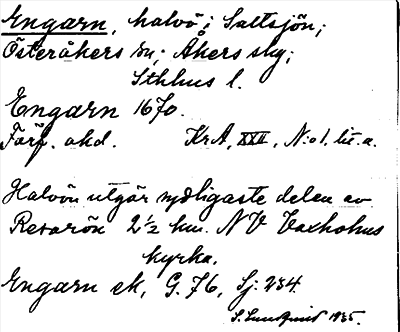 Engarn, halvö i Saltsjön;
Österåkers sn; Åkers sky;
Sthlms l.
Engarn 1670.
Förf. okd. KrA, XXII, N:o 1, lit. a.
Halvön utgör sydligaste delen av
Resarön 2 1/2 km. NV Vaxholms
kyrka.
Engarn ek, G. 76, Sj: 234.
S. Lundquist 1935.